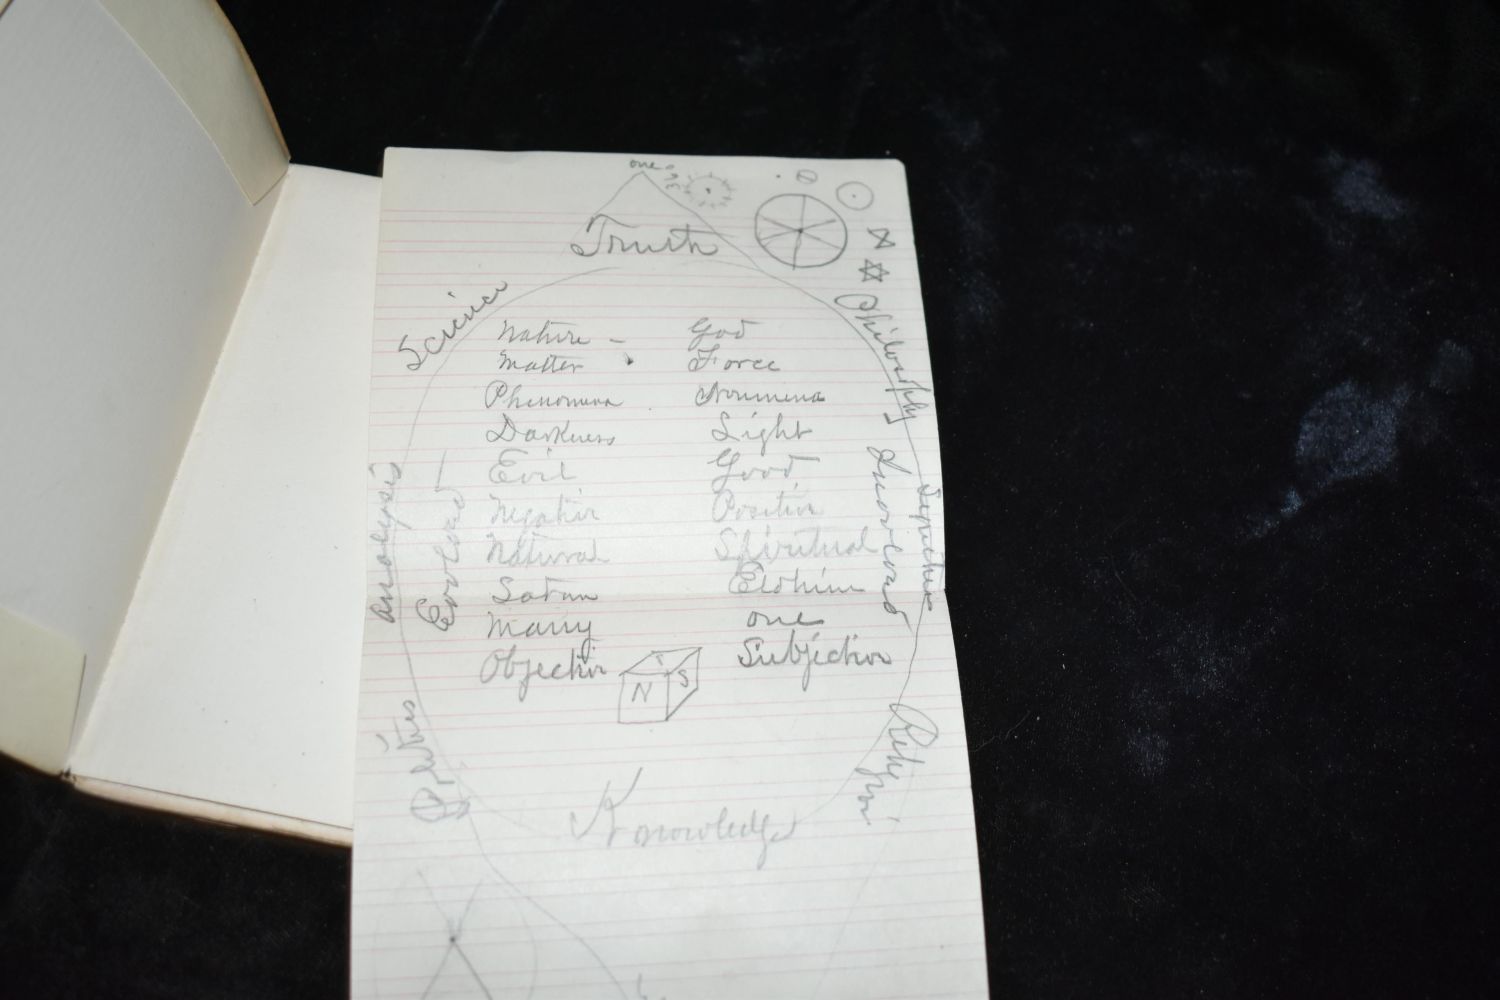 one
Truth
Science
Philosophy
Nature - God
Matter Force
Phenomena Noumena
Darkness Light
Evil Good
Negative Positive
Natural Spiritual
Satan Elohim
Many one
Objective Subjective
N S
Analysis
Knowledge